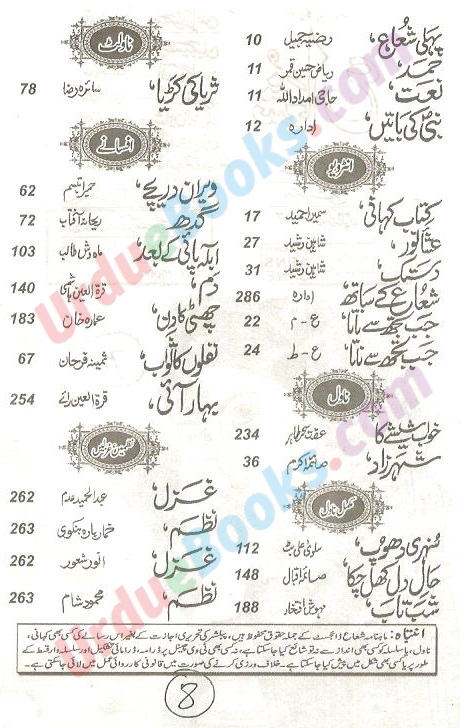 پہلی شعاع، رضیہ جمیل 10
حمد، ریاض حسین قمر 11
نعت، حاجی امداد اللہ 11
نبیؐ کی باتیں، ادارہ 12
انٹرویو
کتاب کہانی، سمیرا حمید 17
عشنا نور، شاہین رشید 27
دستک، شاہین رشید 31
شعاع کے ساتھ، ادارہ 286
جب تجھ سے ناتا، ع - م 22
جب تجھ سے ناتا، ع - ط 24
ناول
خواب شیشے کا عفت سحر طاہر 234
شہر زاد، صائمہ اکرم 36
مکمل ناول
سنہری دھوپ، سلویٰ علی بٹ 112
حالِ دل کھل چکا، صائمہ اقبال 148
شب تاب، مہوش افتخار 188
ناولٹ
ثریا کی گڑیا، سائرہ رضا 78
افسانے
ویران دریچے، حمیرا تبسم 62
گدھ ریحانہ آفتاب 72
آبلہ پائی کے بعد ماہ وش طالب 103
دَم، قرۃ العین ہاشمی 140
چھٹی کا دن، عمارہ خان 183
نفلوں کا ثواب، ثمینہ فرحان 67
بہار آئی، قرۃ العین رائے 254
نظمیں غزلیں
غزل، عبدالحمید عدم 262
نظم، خمار بارہ بنکوی 263
غزل، انور شعور 262
نظم، محمود شام 263
انتباہ: ماہنامہ شعاع ڈائجسٹ کے جملہ حقوق محفوظ ہیں، پبلشر کی تحریری اجازت کے بغیر اس رسالے کی کسی بھی کہانی،
ناول، یا سلسلہ کو کسی بھی انداز سے نہ تو شائع کیا جا سکتا ہے، نہ کسی بھی ٹی وی چینل پر ڈرامہ، ڈرامائی تشکیل اور سلسلہ وار قسط کے
طور پر یا کسی بھی شکل میں پیش کیا جا سکتا ہے۔ خلاف ورزی کرنے کی صورت میں قانونی کارروائی عمل میں لائی جا سکتی ہے۔
8
UrdueBooks.com
UrdueBooks.com
UrdueBooks.com